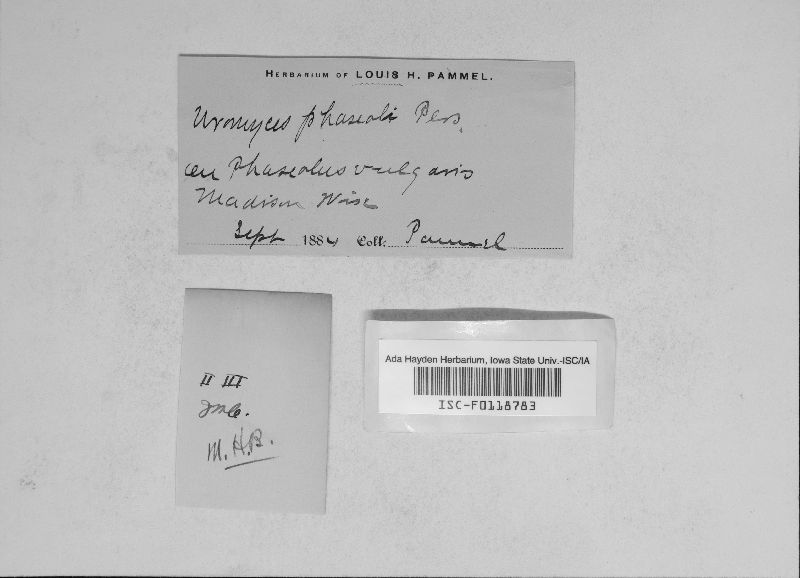 HERBARIUM OF LOUIS H. PAMMEL.
Uromyces phaseoli Pers.
on Phaseolus vulgaris
Madison Wisc
Sept 1884 Coll: Pammel
II III
M.H.B.
Ada Hayden Herbarium, Iowa State Univ.-ISC/IA
ISC-F0118783